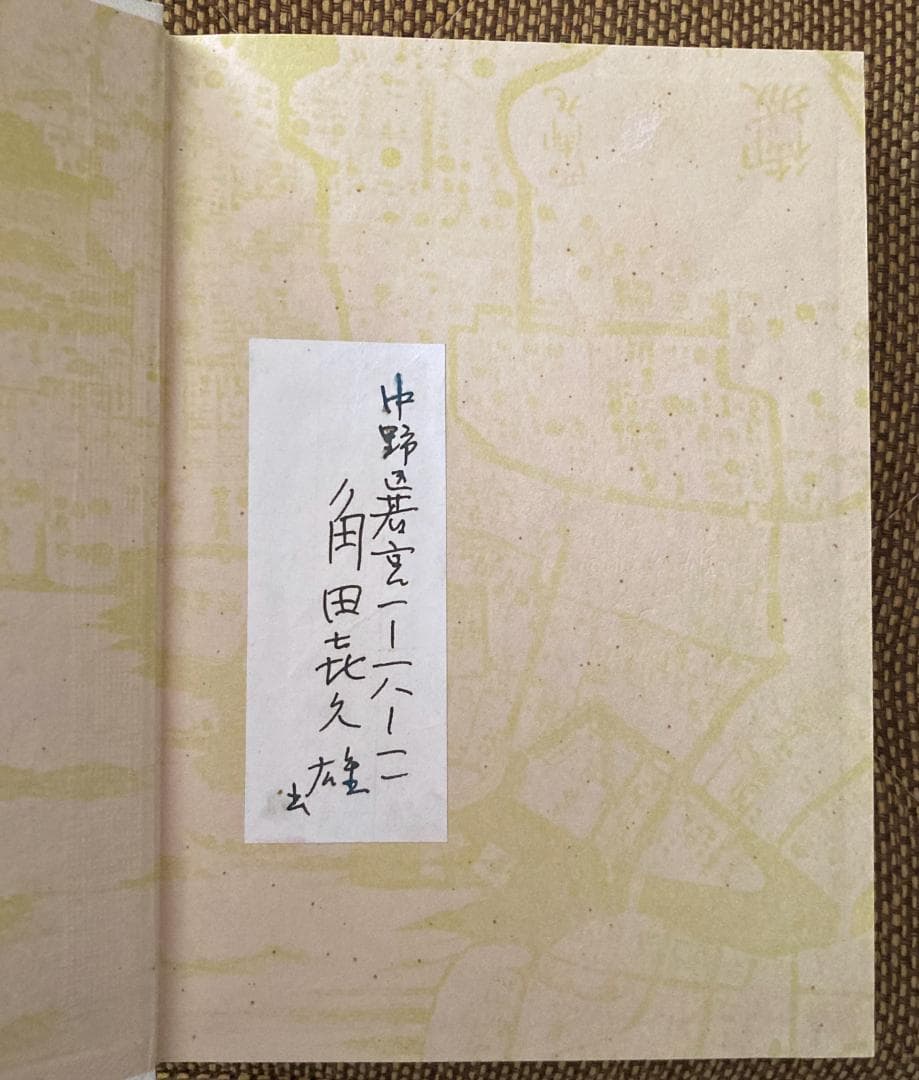 御城
中野区若宮一ー一八ー一二
角田喜久雄